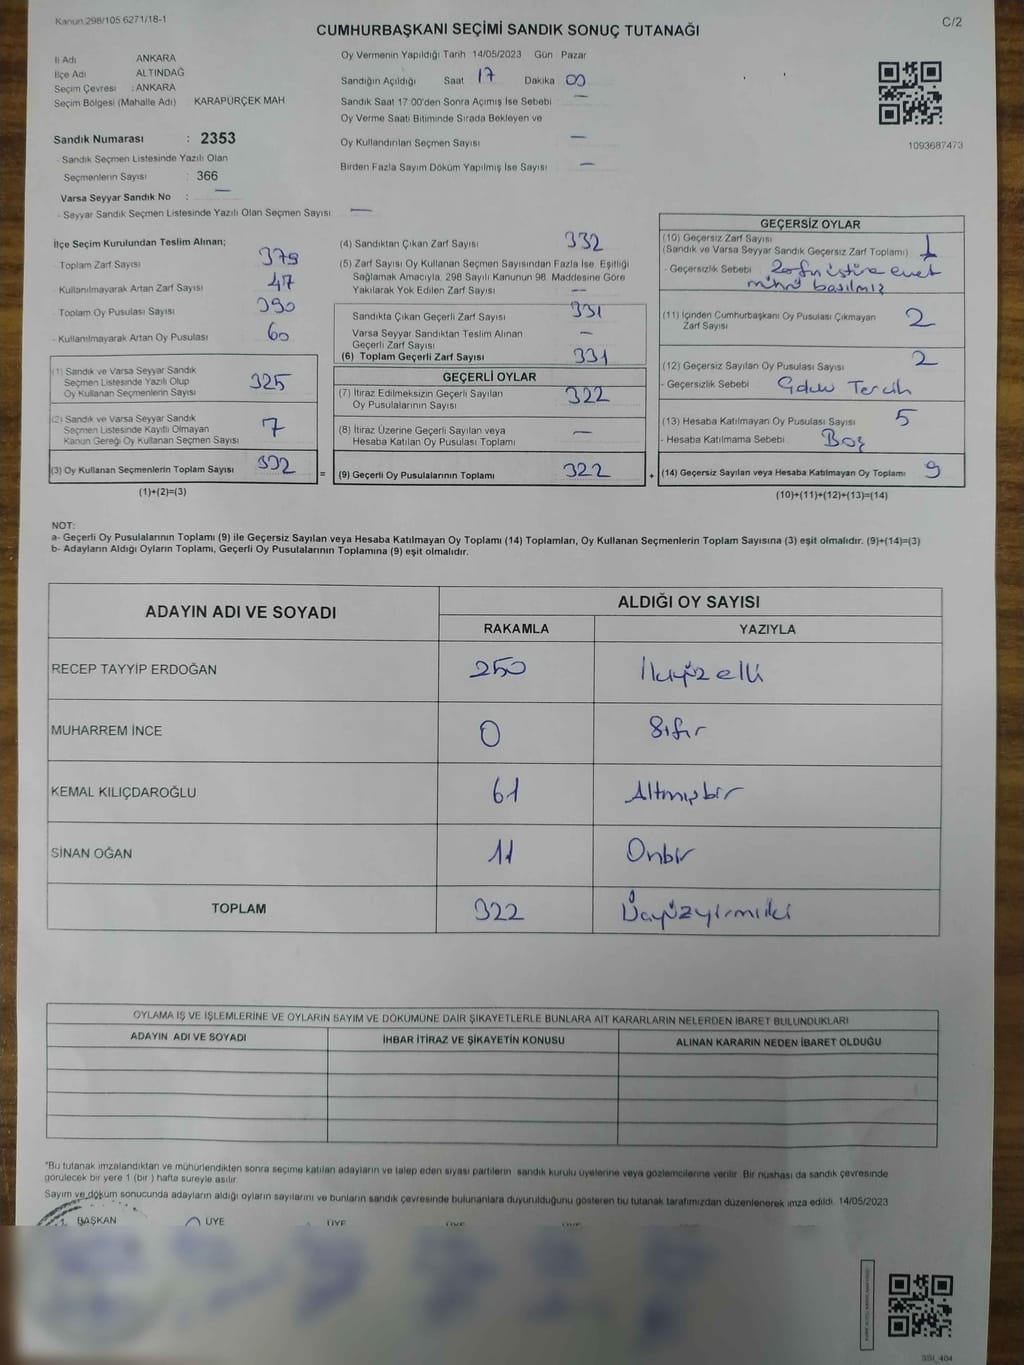 Kanun 298/105 6271/18-1
C/2
CUMHURBAŞKANI SEÇİMİ SANDIK SONUÇ TUTANAĞI
İl Adı ANKARA
İlçe Adı ALTINDAĞ
Seçim Çevresi : ANKARA
Seçim Bölgesi (Mahalle Adı) KARAPÜRÇEK MAH
Sandık Numarası : 2353
- Sandık Seçmen Listesinde Yazılı Olan
Seçmenlerin Sayısı : 366
Varsa Seyyar Sandık No : —
- Seyyar Sandık Seçmen Listesinde Yazılı Olan Seçmen Sayısı —
Oy Vermenin Yapıldığı Tarih 14/05/2023 Gün Pazar
Sandığın Açıldığı Saat 17 Dakika 00
Sandık Saat 17 00'den Sonra Açımış İse Sebebi —
Oy Verme Saati Bitiminde Sırada Bekleyen ve
Oy Kullandırılan Seçmen Sayısı —
Birden Fazla Sayım Döküm Yapılmış İse Sayısı —
1093687473
İlçe Seçim Kurulundan Teslim Alınan;
Toplam Zarf Sayısı 379
- Kullanılmayarak Artan Zarf Sayısı 47
Toplam Oy Pusulası Sayısı 390
- Kullanılmayarak Artan Oy Pusulası 60
(1) Sandık ve Varsa Seyyar Sandık
Seçmen Listesinde Yazılı Olup
Oy Kullanan Seçmenlerin Sayısı 325
(2) Sandık ve Varsa Seyyar Sandık
Seçmen Listesinde Kayıtlı Olmayan
Kanun Gereği Oy Kullanan Seçmen Sayısı 7
(3) Oy Kullanan Seçmenlerin Toplam Sayısı 332 =
(1)+(2)=(3)
(4) Sandıktan Çıkan Zarf Sayısı 332
(5) Zarf Sayısı Oy Kullanan Seçmen Sayısından Fazla İse, Eşitliği
Sağlamak Amacıyla, 298 Sayılı Kanunun 98. Maddesine Göre
Yakılarak Yok Edilen Zarf Sayısı —
Sandıkta Çıkan Geçerli Zarf Sayısı 331
Varsa Seyyar Sandıktan Teslim Alınan
Geçerli Zarf Sayısı —
(6) Toplam Geçerli Zarf Sayısı 331
GEÇERLİ OYLAR
(7) İtiraz Edilmeksizin Geçerli Sayılan
Oy Pusulalarının Sayısı 322
(8) İtiraz Üzerine Geçerli Sayılan veya
Hesaba Katılan Oy Pusulası Toplamı —
(9) Geçerli Oy Pusulalarının Toplamı 322 +
GEÇERSİZ OYLAR
(10) Geçersiz Zarf Sayısı
(Sandık ve Varsa Seyyar Sandık Geçersiz Zarf Toplamı) 1
- Geçersizlik Sebebi Zarfın üstüne evet
mührü basılmış
(11) İçinden Cumhurbaşkanı Oy Pusulası Çıkmayan
Zarf Sayısı 2
(12) Geçersiz Sayılan Oy Pusulası Sayısı 2
- Geçersizlik Sebebi Tercih
(13) Hesaba Katılmayan Oy Pusulası Sayısı 5
- Hesaba Katılmama Sebebi Boş
(14) Geçersiz Sayılan veya Hesaba Katılmayan Oy Toplamı 9
(10)+(11)+(12)+(13)=(14)
NOT:
a- Geçerli Oy Pusulalarının Toplamı (9) ile Geçersiz Sayılan veya Hesaba Katılmayan Oy Toplamı (14) Toplamları, Oy Kullanan Seçmenlerin Toplam Sayısına (3) eşit olmalıdır. (9)+(14)=(3)
b- Adayların Aldığı Oyların Toplamı, Geçerli Oy Pusulalarının Toplamına (9) eşit olmalıdır.
ADAYIN ADI VE SOYADI ALDIĞI OY SAYISI
RAKAMLA YAZIYLA
RECEP TAYYİP ERDOĞAN 250 İkiyüzelli
MUHARREM İNCE 0 Sıfır
KEMAL KILIÇDAROĞLU 61 Altmışbir
SİNAN OĞAN 11 Onbir
TOPLAM 322 Üçyüzyirmiiki
OYLAMA İŞ VE İŞLEMLERİNE VE OYLARIN SAYIM VE DÖKÜMÜNE DAİR ŞİKAYETLERLE BUNLARA AİT KARARLARIN NELERDEN İBARET BULUNDUKLARI
ADAYIN ADI VE SOYADI İHBAR İTİRAZ VE ŞİKAYETİN KONUSU ALINAN KARARIN NEDEN İBARET OLDUĞU
*Bu tutanak imzalandıktan ve mühürlendikten sonra seçime katılan adayların ve talep eden siyasi partilerin sandık kurulu üyelerine veya gözlemcilerine verilir. Bir nüshası da sandık çevresinde
görülecek bir yere 1 (bir) hafta süreyle asılır.
Sayım ve döküm sonucunda adayların aldığı oyların sayılarını ve bunların sandık çevresinde bulunanlara duyurulduğunu gösteren bu tutanak tarafımızdan düzenlenerek imza edildi. 14/05/2023
1. BAŞKAN ÜYE ÜYE ÜYE ÜYE